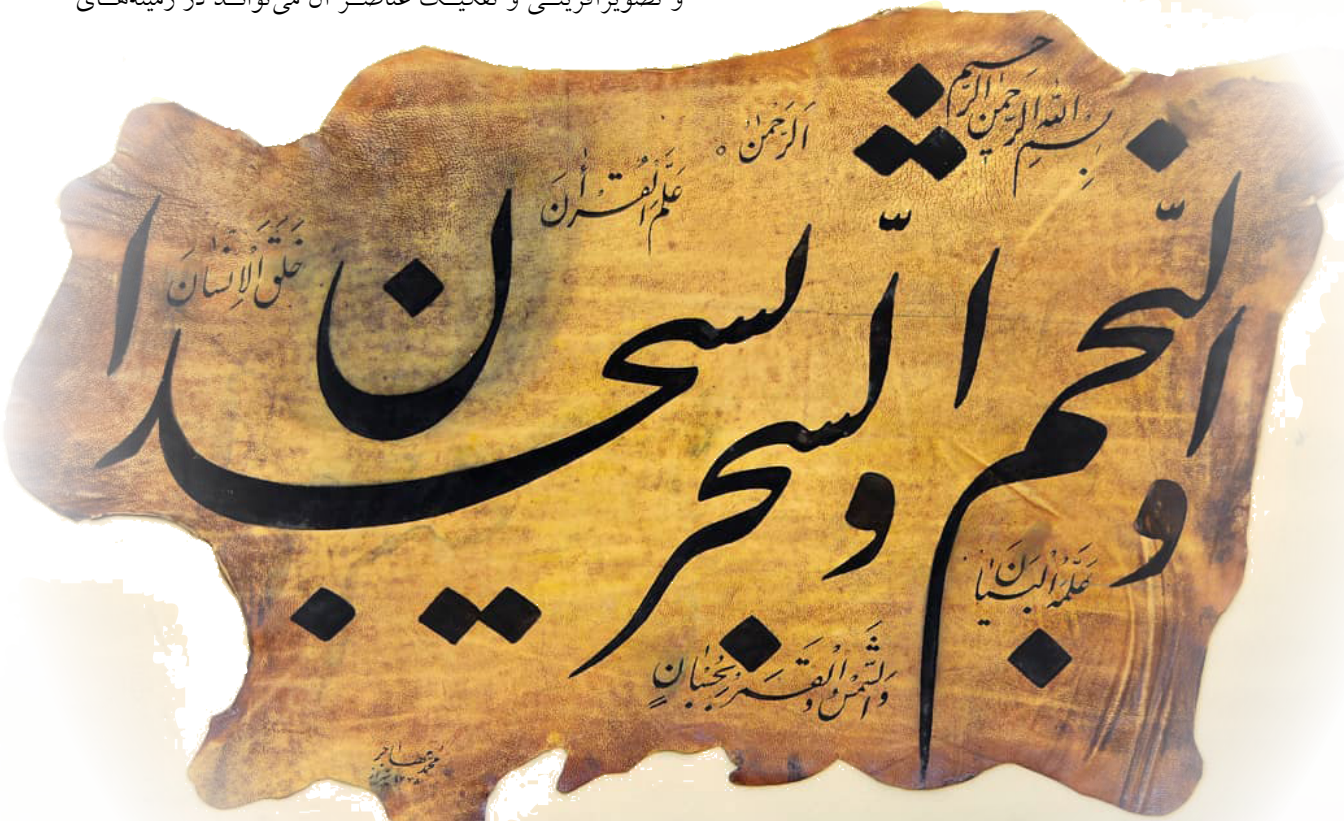 و تصویرآفرینی و تفکیک عناصر آن می‌تواند در زمینه‌های
بِسمِ اللهِ الرَّحمٰنِ الرَّحیم
اَلرَّحْمٰنُ
عَلَّمَ الْقُرْأٰنَ
خَلَقَ الْاِنْسٰانَ
عَلَّمَهُ الْبَیٰانَ
وَالشَّمْسُ وَالْقَمَرُ بِحُسْبٰانٍ
والنّجم والشّجر یسجدان
محمد مهاجر